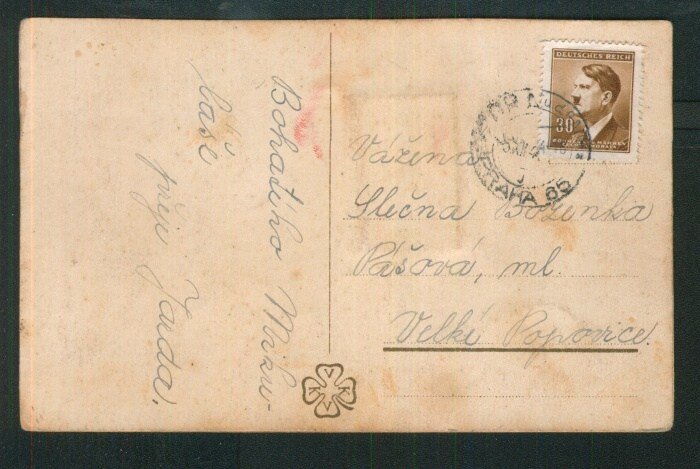 Bohatého Miku-
láše
přeje Jarda.
DEUTSCHES REICH
30
BÖHMEN UND MÄHREN
PRAHA 85
Vážená
Slečna Boženka
Pášová, ml.
Velké Popovice.
V
K K
V